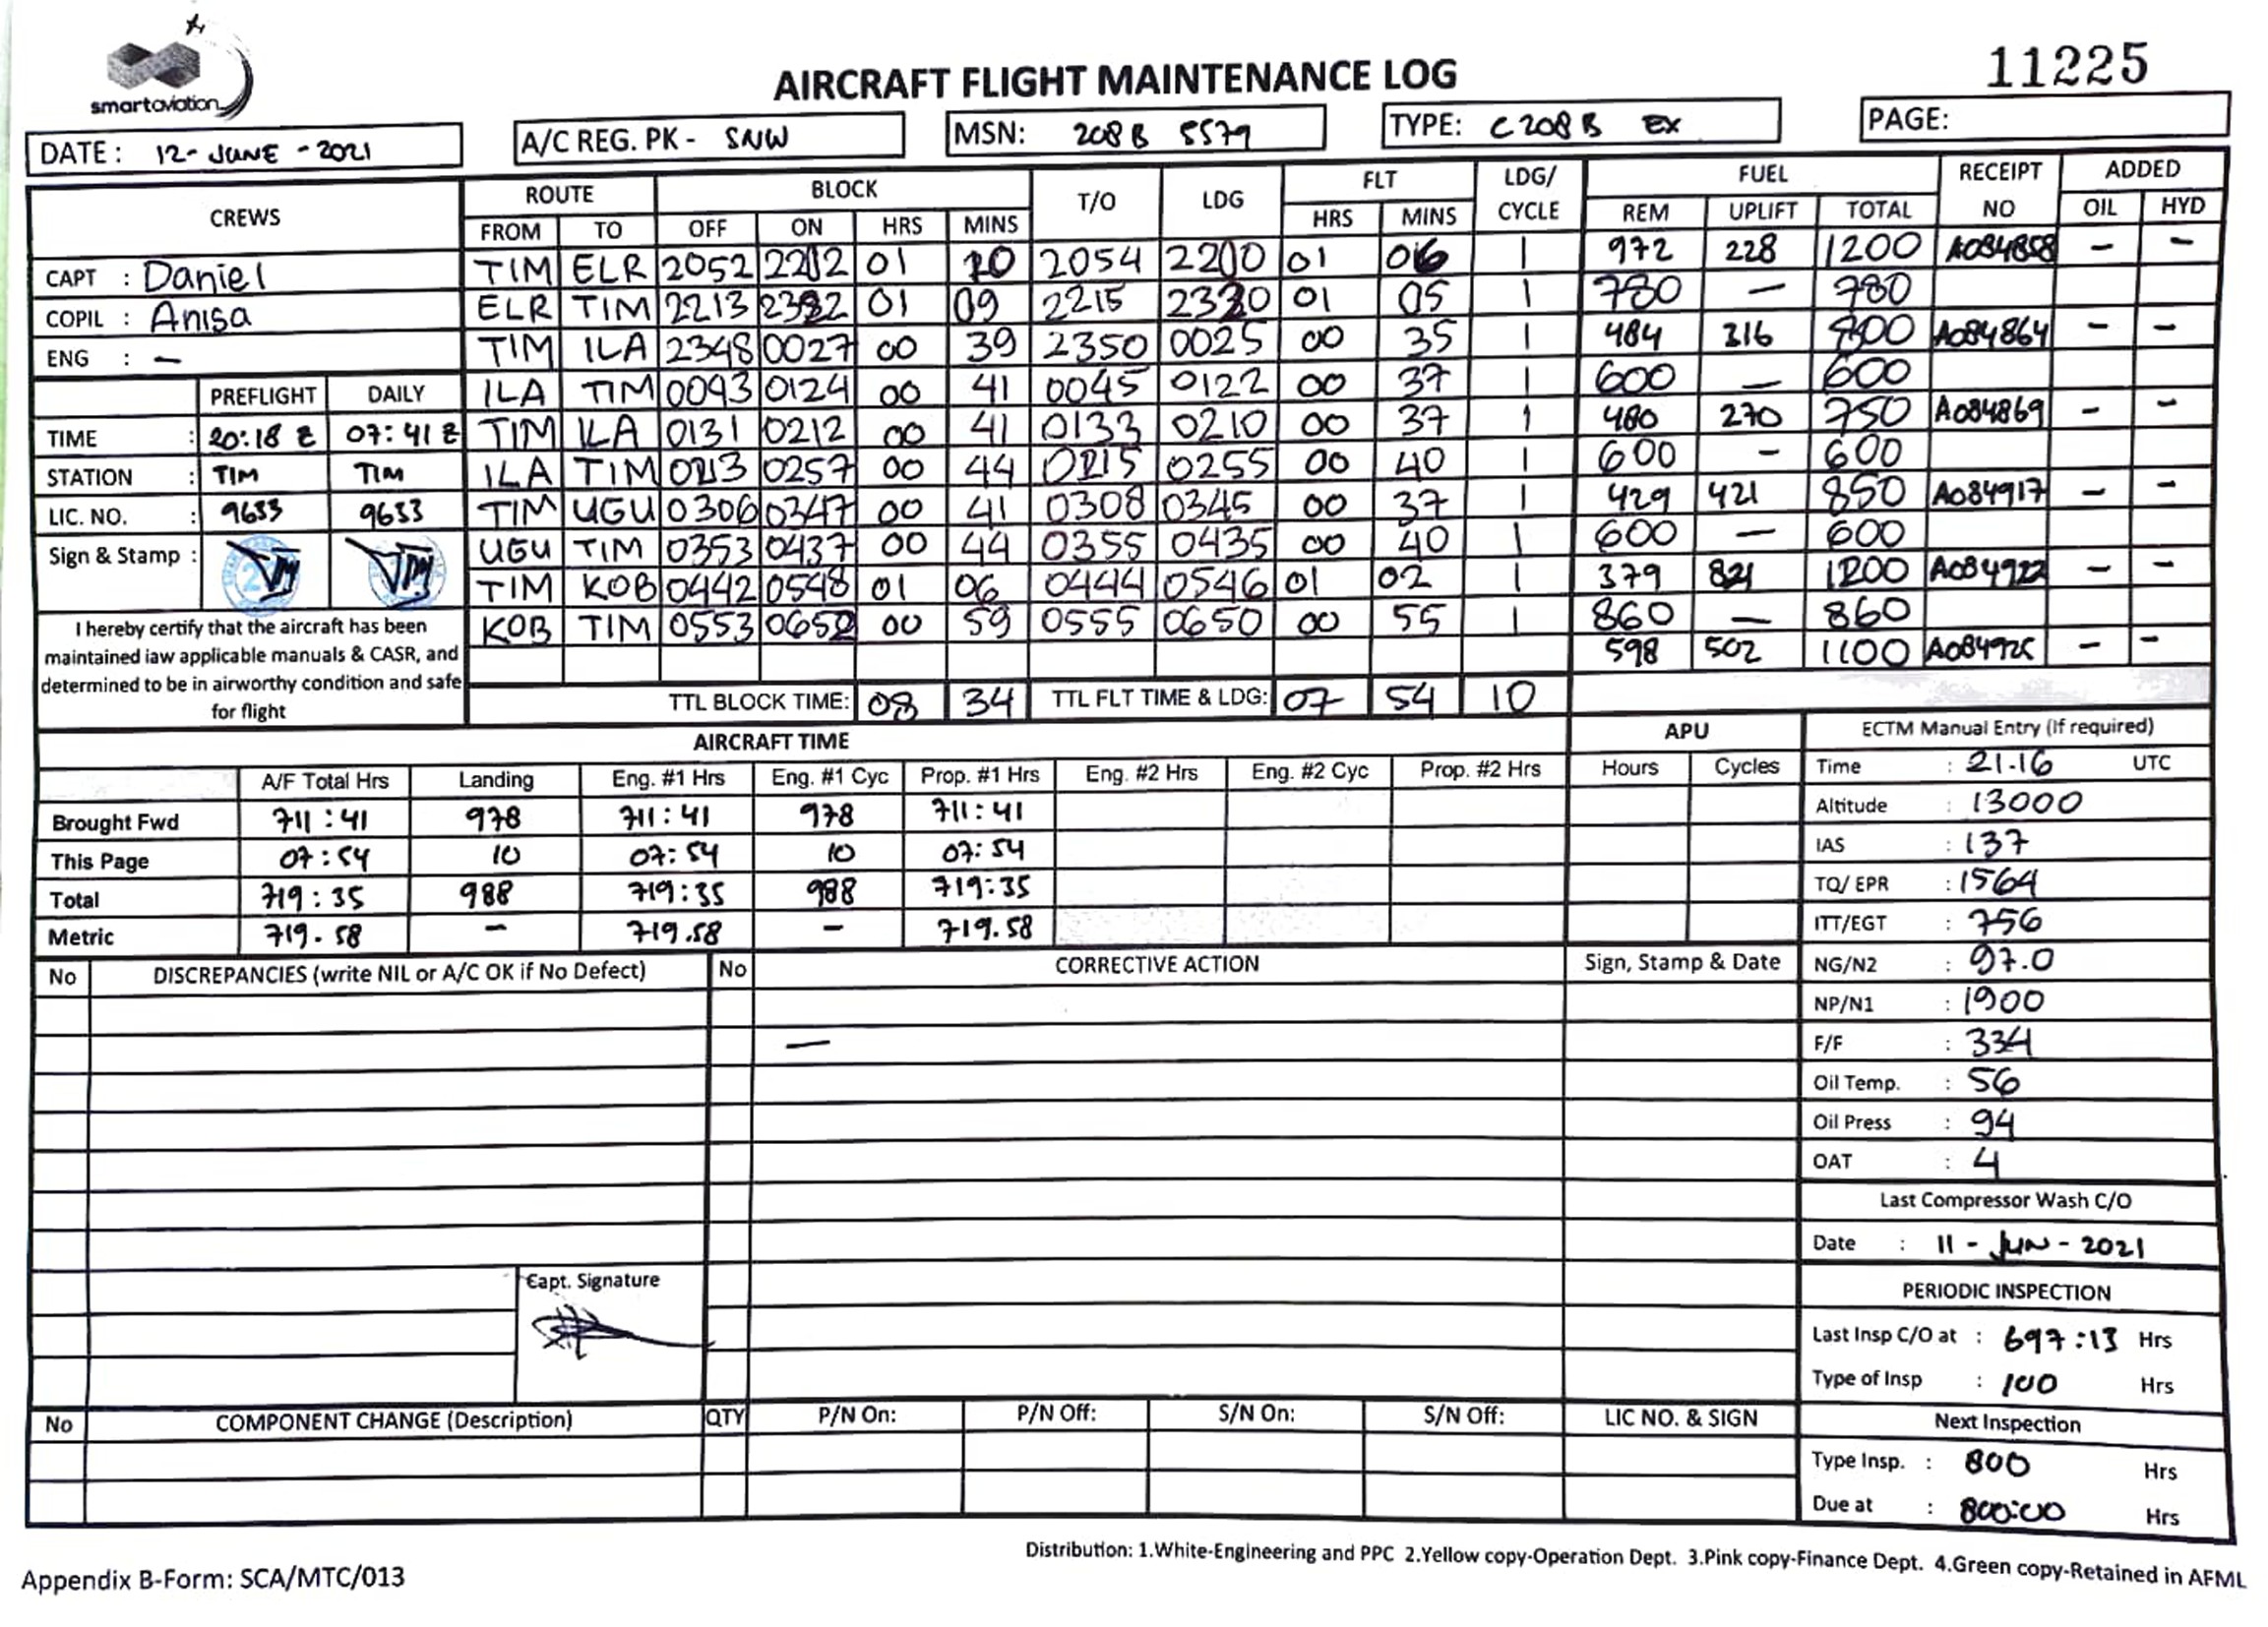 smartaviation
AIRCRAFT FLIGHT MAINTENANCE LOG
11225
DATE : 12-JUNE-2021
A/C REG. PK - SNW
MSN: 208B 5579
TYPE: C208B EX
PAGE:
CREWS ROUTE BLOCK T/O LDG FLT LDG/ CYCLE FUEL RECEIPT NO ADDED
FROM TO OFF ON HRS MINS HRS MINS REM UPLIFT TOTAL OIL HYD
CAPT : Daniel
COPIL : Anisa
ENG : —
TIM ELR 2052 2202 01 10 2054 2200 01 06 1 972 228 1200 A084858 - -
ELR TIM 2213 2322 01 09 2215 2320 01 05 1 780 — 780
TIM ILA 2348 0027 00 39 2350 0025 00 35 1 484 316 800 A084864 - -
ILA TIM 0043 0124 00 41 0045 0122 00 37 1 600 — 600
TIM ILA 0131 0212 00 41 0133 0210 00 37 1 480 270 750 A084869 - -
ILA TIM 0213 0257 00 44 0215 0255 00 40 1 600 - 600
TIM UGU 0306 0347 00 41 0308 0345 00 37 1 429 421 850 A084917 - -
UGU TIM 0353 0437 00 44 0355 0435 00 40 1 600 — 600
TIM KOB 0442 0548 01 06 0444 0546 01 02 1 379 821 1200 A084922 - -
KOB TIM 0553 0652 00 59 0555 0650 00 55 1 860 — 860
598 502 1100 - -
PREFLIGHT DAILY
TIME : 20:18 Z 07:41 Z
STATION : TIM TIM
LIC. NO. : 9633 9633
Sign & Stamp :
I hereby certify that the aircraft has been
maintained iaw applicable manuals & CASR, and
determined to be in airworthy condition and safe
for flight
TTL BLOCK TIME: 08 34 TTL FLT TIME & LDG: 07 54 10
AIRCRAFT TIME APU
A/F Total Hrs Landing Eng. #1 Hrs Eng. #1 Cyc Prop. #1 Hrs Eng. #2 Hrs Eng. #2 Cyc Prop. #2 Hrs Hours Cycles
Brought Fwd 711:41 978 711:41 978 711:41
This Page 07:54 10 07:54 10 07:54
Total 719:35 988 719:35 988 719:35
Metric 719.58 - 719.58 - 719.58
ECTM Manual Entry (If required)
Time : 21.16 UTC
Altitude : 13000
IAS : 137
TQ/ EPR : 1564
ITT/EGT : 756
NG/N2 : 97.0
NP/N1 : 1900
F/F : 334
Oil Temp. : 56
Oil Press : 94
OAT : 4
Last Compressor Wash C/O
Date : 11-JUN-2021
PERIODIC INSPECTION
Last Insp C/O at : 697:13 Hrs
Type of Insp : 100 Hrs
Next Inspection
Type Insp. : 800 Hrs
Due at : 800:00 Hrs
No DISCREPANCIES (write NIL or A/C OK if No Defect) No CORRECTIVE ACTION Sign, Stamp & Date
—
Capt. Signature
No COMPONENT CHANGE (Description) QTY P/N On: P/N Off: S/N On: S/N Off: LIC NO. & SIGN
Distribution: 1.White-Engineering and PPC 2.Yellow copy-Operation Dept. 3.Pink copy-Finance Dept. 4.Green copy-Retained in AFML
Appendix B-Form: SCA/MTC/013